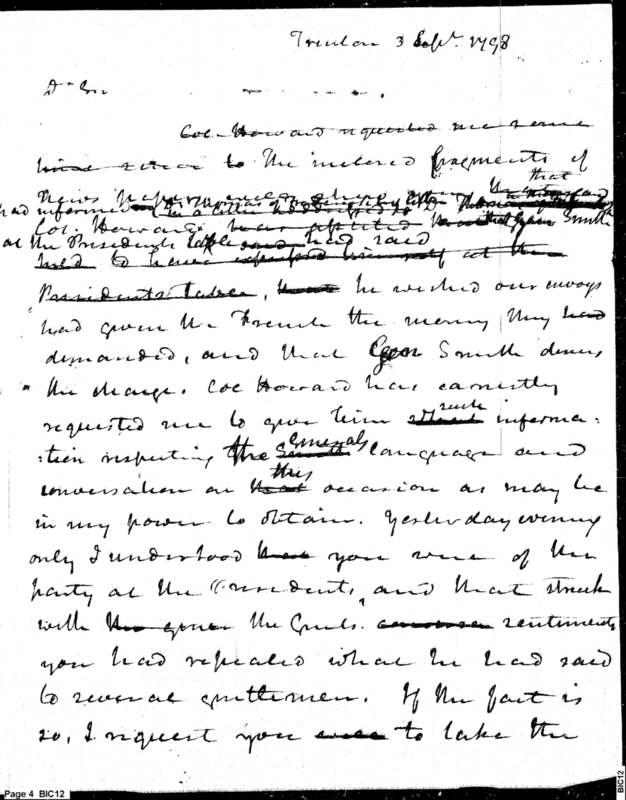 Trenton 3 Sept. 1798
Dr Sir
Col. Howard requested me some
time since to The inclosed fragments of
News papers that
had informed in a letter addressed to
Col. Howard has Smith
at the Presidents table and had said
held to have expressed himself at the
Presidents table, that he wished our envoys
had given the French the money they had
demanded, and that Gen Smith denies
the charge. Col Howard has earnestly
requested me to give him such informa:
:tion respecting the Smith Generals language and
conversation on that this occasion as may be
in my power to obtain. Yesterday evening
only I understood that you were of the
party at the Presidents, and that struck
with the genes the Genls. sentiments
you had repeated what he had said
to several gentlemen. If the fact is
so, I request you to take the
Page 4 BIC12
BIC12